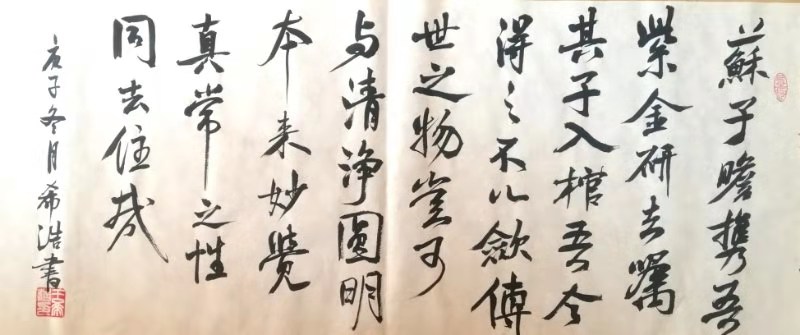 蘇子瞻携吾
紫金研去嘱
其子入棺吾今
得之不以歛傳
世之物豈可
与清浄圓明
本来妙覺
真常之性
同去住哉
庚子冬月希浩書